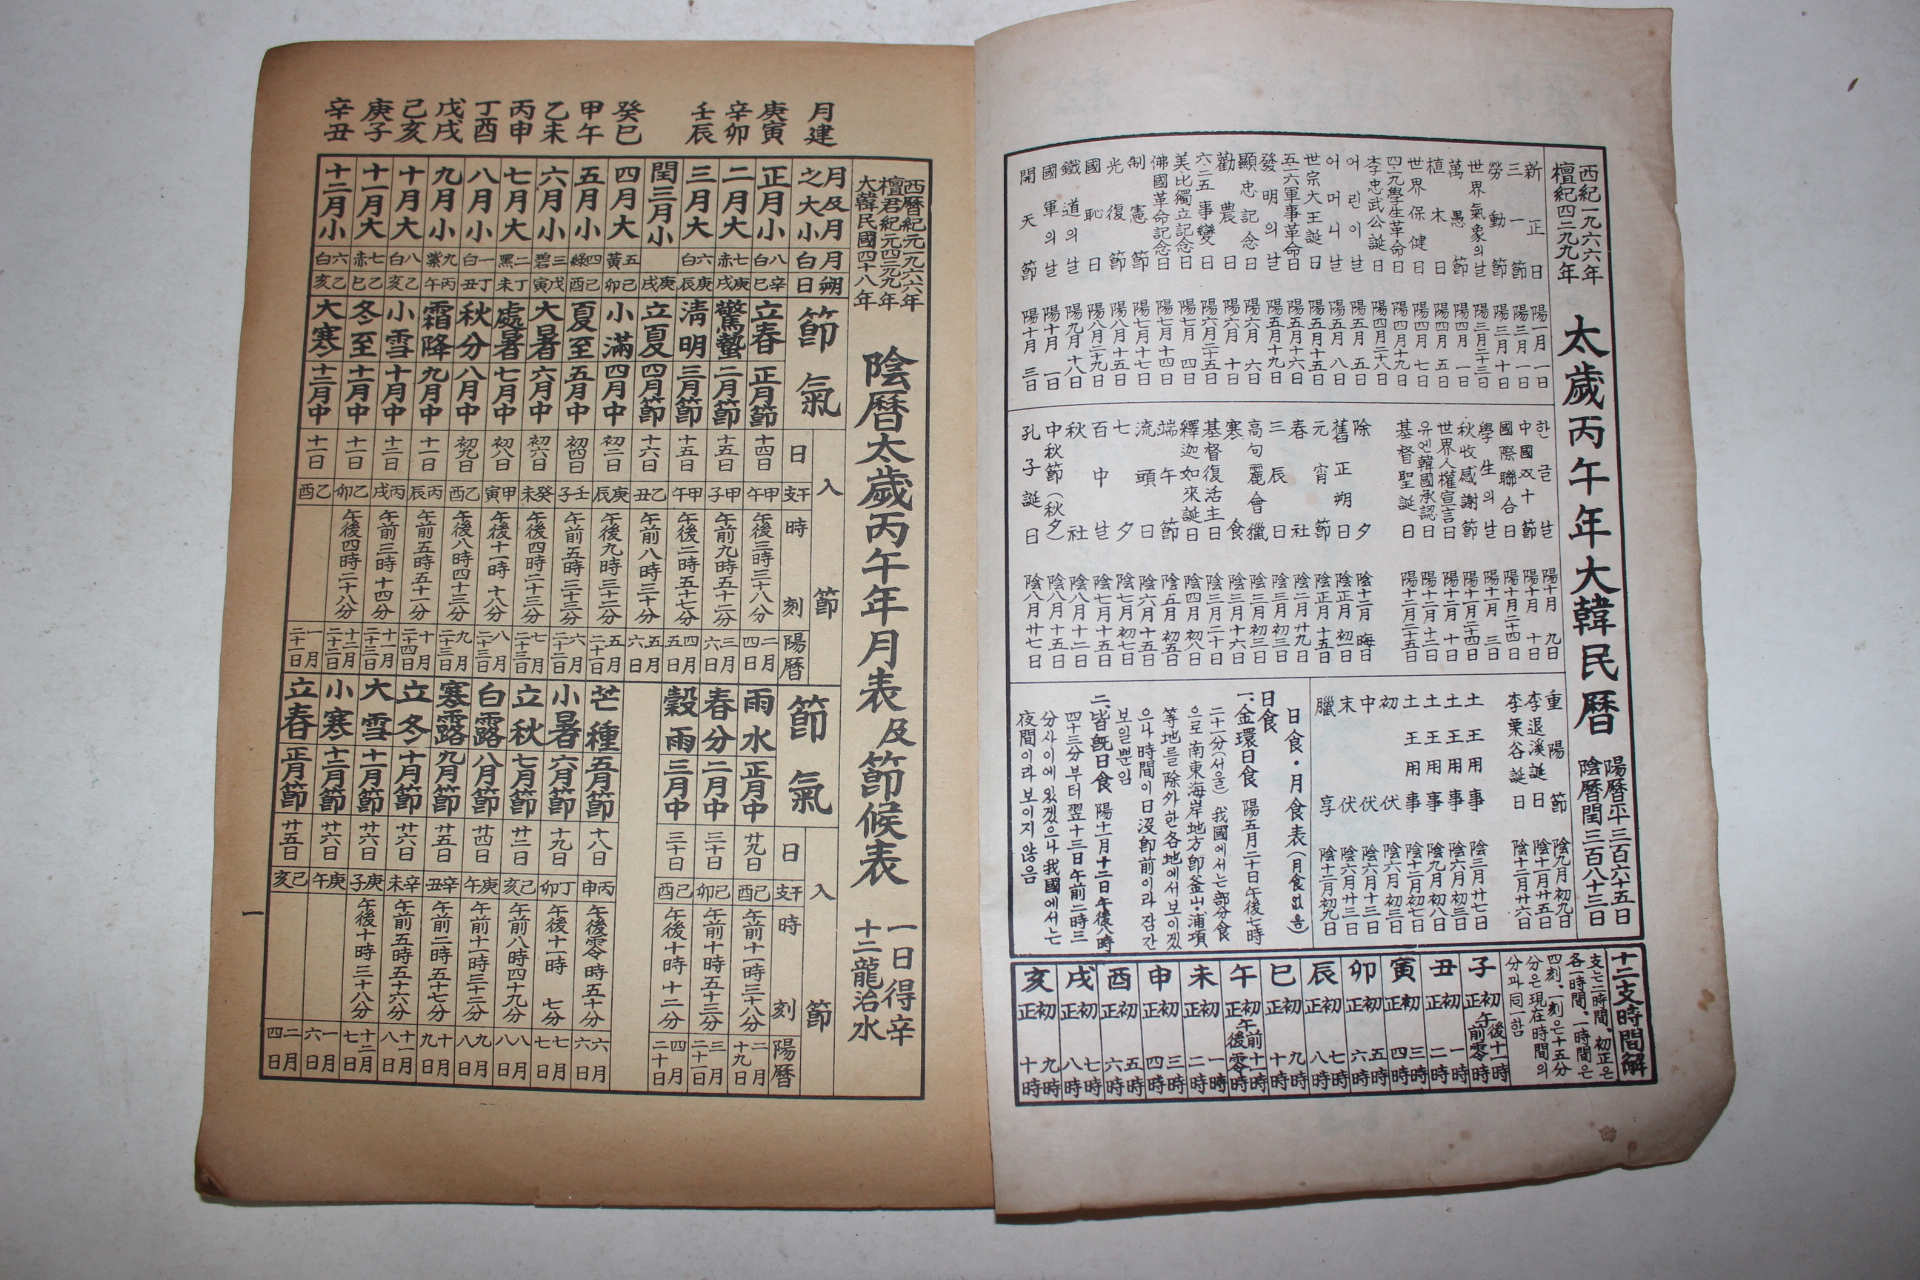 西紀一九六六年
檀紀四二九九年
太歲丙午年大韓民曆
陽曆平三百六十五日
陰曆閏三百八十三日
新正日 陽一月一日
三一節 陽三月一日
勞動節 陽三月十日
世界氣象의날 陽三月二十三日
萬愚節 陽四月一日
植木日 陽四月五日
世界保健日 陽四月七日
四一九學生革命日 陽四月十九日
李忠武公誕日 陽四月二十八日
어린이날 陽五月五日
어머니날 陽五月八日
世宗大王誕日 陽五月十五日
五一六軍事革命日 陽五月十六日
發明의날 陽五月十九日
顯忠記念日 陽六月六日
勸農日 陽六月十日
六二五事變日 陽六月二十五日
美比獨立記念日 陽七月四日
佛國革命記念日 陽七月十四日
制憲節 陽七月十七日
光復節 陽八月十五日
國恥日 陽八月二十九日
鐵道의날 陽九月十八日
國軍의날 陽十月一日
開天節 陽十月三日
한글날 陽十月九日
中國双十節 陽十月十日
國際聯合日 陽十月二十四日
學生의날 陽十一月三日
秋收感謝節 陽十一月二十四日
世界人權宣言日 陽十二月十日
유엔韓國承認日 陽十二月十二日
基督聖誕日 陽十二月二十五日
除夕 陰十二月晦日
舊正朔日 陰正月初一日
元宵節 陰正月十五日
春社 陰二月廿九日
三辰日 陰三月初三日
高句麗會獵 陰三月初三日
寒食 陰三月十六日
基督復活主日 陰三月二十日
釋迦如來誕日 陰四月初八日
端午節 陰五月初五日
流頭日 陰六月十五日
七夕 陰七月初七日
百中날 陰七月十五日
秋社 陰八月十二日
中秋節(秋夕) 陰八月十五日
孔子誕日 陰八月廿七日
重陽節 陰九月初九日
李退溪誕日 陰十一月廿五日
李栗谷誕日 陰十二月廿六日
土王用事 陰三月廿七日
土王用事 陰六月初三日
土王用事 陰九月初八日
土王用事 陰十二月初七日
初伏 陰六月初三日
中伏 陰六月十三日
末伏 陰六月廿三日
臘享 陰十二月初九日
日食·月食表(月食없음)
日食
一、金環日食 陽五月二十日午後七時
二十一分(서울) 我國에서는部分食
으로 南東海岸地方卽釜山·浦項
等地를除外한各地에서보이겠
으나時間이日沒卽前이라잠간
보일뿐임
二、皆旣日食 陽十一月十二日午後八時
四十三分부터翌十三日午前二時三
分사이에있겠으나我國에서는
夜間이라보이지않음
十二支時間解
支는二時間。初正은
各一時間。一時間은
四刻。一刻은十五分
分은現在時間의
分과同一함
子 初 午後十一時
正 午前零時
丑 初 一時
正 二時
寅 初 三時
正 四時
卯 初 五時
正 六時
辰 初 七時
正 八時
巳 初 九時
正 十時
午 初 午前十一時
正 午後零時
未 初 一時
正 二時
申 初 三時
正 四時
酉 初 五時
正 六時
戌 初 七時
正 八時
亥 初 九時
正 十時
西曆紀元一九六六年
檀君紀元四二九九年
大韓民國四十八年
陰曆太歲丙午年月表及節候表
一日得辛
十二龍治水
月建 月及月之大小 月白 朔日 節氣 入節 日 干支 時刻 陽曆 節氣 入節 日 干支 時刻 陽曆
庚寅 正月小 八白 辛巳 立春 正月節 十四日 甲午 午後三時三十八分 二月四日 雨水 正月中 廿九日 己酉 午前十一時三十八分 二月十九日
辛卯 二月大 七赤 庚戌 驚蟄 二月節 十五日 甲子 午前九時五十二分 三月六日 春分 二月中 三十日 己卯 午前十時五十三分 三月二十一日
壬辰 三月大 六白 庚辰 淸明 三月節 十五日 甲午 午後二時五十七分 四月五日 穀雨 三月中 三十日 己酉 午後十時十二分 四月二十日
閏三月小 庚戌 立夏 四月節 十六日 乙丑 午前八時三十分 五月六日
癸巳 四月大 五黃 己卯 小滿 四月中 初二日 庚辰 午後九時三十二分 五月二十一日 芒種 五月節 十八日 丙申 午後零時五十分 六月六日
甲午 五月小 四綠 己酉 夏至 五月中 初四日 壬子 午前五時三十三分 六月二十二日 小暑 六月節 十九日 丁卯 午後十一時七分 七月七日
乙未 六月小 三碧 戊寅 大暑 六月中 初六日 癸未 午後四時二十三分 七月二十三日 立秋 七月節 廿二日 己亥 午前八時四十九分 八月八日
丙申 七月大 二黑 丁未 處暑 七月中 初八日 甲寅 午後十一時十八分 八月二十三日 白露 八月節 廿四日 庚午 午前十一時三十二分 九月八日
丁酉 八月小 一白 丁丑 秋分 八月中 初九日 乙酉 午後八時四十三分 九月二十三日 寒露 九月節 廿五日 辛丑 午前二時五十七分 十月九日
戊戌 九月小 九紫 丙午 霜降 九月中 十一日 丙辰 午前五時五十一分 十月二十四日 立冬 十月節 廿六日 辛未 午前五時五十六分 十一月八日
己亥 十月大 八白 乙亥 小雪 十月中 十二日 丙戌 午前三時十四分 十一月二十三日 大雪 十一月節 廿六日 庚子 午後十時三十八分 十二月七日
庚子 十一月大 七赤 乙巳 冬至 十一月中 十一日 乙卯 午後四時二十八分 十二月二十二日 小寒 十二月節 廿六日 庚午 一月六日
辛丑 十二月小 六白 乙亥 大寒 十二月中 十一日 乙酉 一月二十一日 立春 正月節 廿五日 己亥 二月四日
一